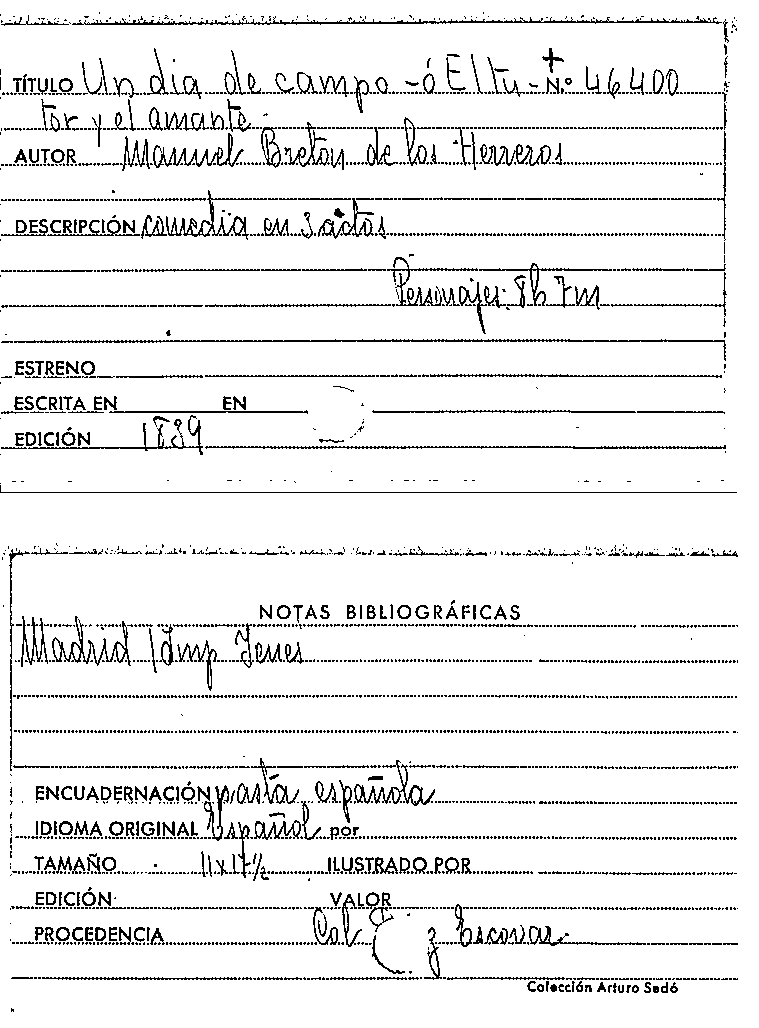 TÍTULO Un dia de campo - ó El tu - N.º 46400
tor y el amante.
AUTOR Manuel Breton de los Herreros
DESCRIPCIÓN comedia en 3 actos
Personajes: 8h 7m
ESTRENO
ESCRITA EN EN
EDICIÓN 1839
NOTAS BIBLIOGRÁFICAS
Madrid / Imp Yenes
ENCUADERNACIÓN pasta española
IDIOMA ORIGINAL Español por
TAMAÑO 11 x 17 ½ ILUSTRADO POR
EDICIÓN VALOR
PROCEDENCIA Col z Escovar
Colección Arturo Sedó